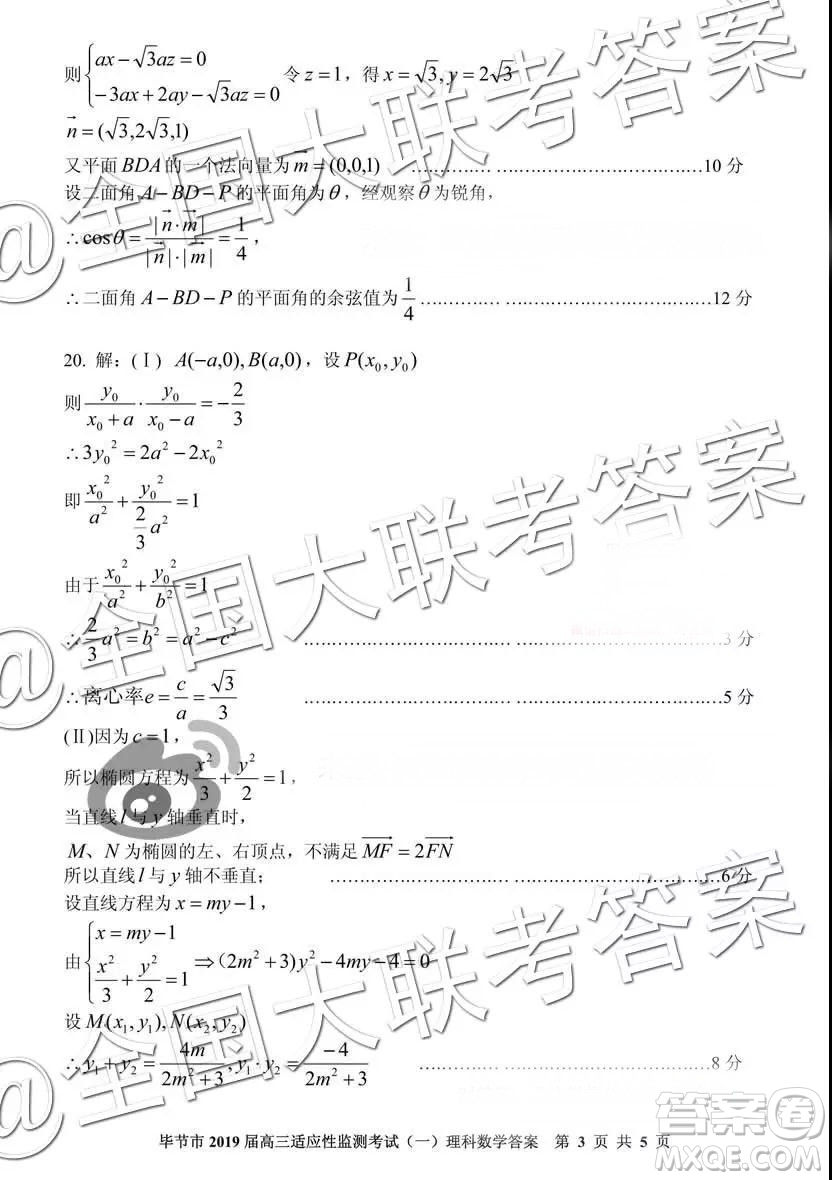 则{ax－√3az＝0
－3ax＋2ay－√3az＝0 令 z＝1，得 x＝√3, y＝2√3
n⃗＝(√3,2√3,1)
又平面 BDA 的一个法向量为 m⃗＝(0,0,1) ……………………………10 分
设二面角 A－BD－P 的平面角为θ，经观察θ为锐角，
∴cosθ＝|n⃗·m⃗|/(|n⃗|·|m⃗|)＝1/4，
∴二面角 A－BD－P 的平面角的余弦值为 1/4 ……………………………12 分
20. 解：(Ⅰ) A(－a,0), B(a,0)，设 P(x₀, y₀)
则 y₀/(x₀＋a)·y₀/(x₀－a)＝－2/3
∴3y₀²＝2a²－2x₀²
即 x₀²/a²＋y₀²/((2/3)a²)＝1
由于 x₀²/a²＋y₀²/b²＝1
∴(2/3)a²＝b²＝a²－c² ……………………………3 分
∴离心率 e＝c/a＝√3/3 ……………………………5 分
(Ⅱ)因为 c＝1，
所以椭圆方程为 x²/3＋y²/2＝1，
当直线 l 与 y 轴垂直时，
M、N 为椭圆的左、右顶点，不满足 MF⃗＝2FN⃗
所以直线 l 与 y 轴不垂直； ……………………………6 分
设直线方程为 x＝my－1，
由{x＝my－1
x²/3＋y²/2＝1 ⇒(2m²＋3)y²－4my－4＝0
设 M(x₁, y₁), N(x₂, y₂)
∴y₁＋y₂＝4m/(2m²＋3), y₁·y₂＝－4/(2m²＋3) ……………………………8 分
毕节市 2019 届高三适应性监测考试（一）理科数学答案 第 3 页 共 5 页
@全国大联考答案
@全国大联考答案
@全国大联考答案
答案圈
MXQE.COM